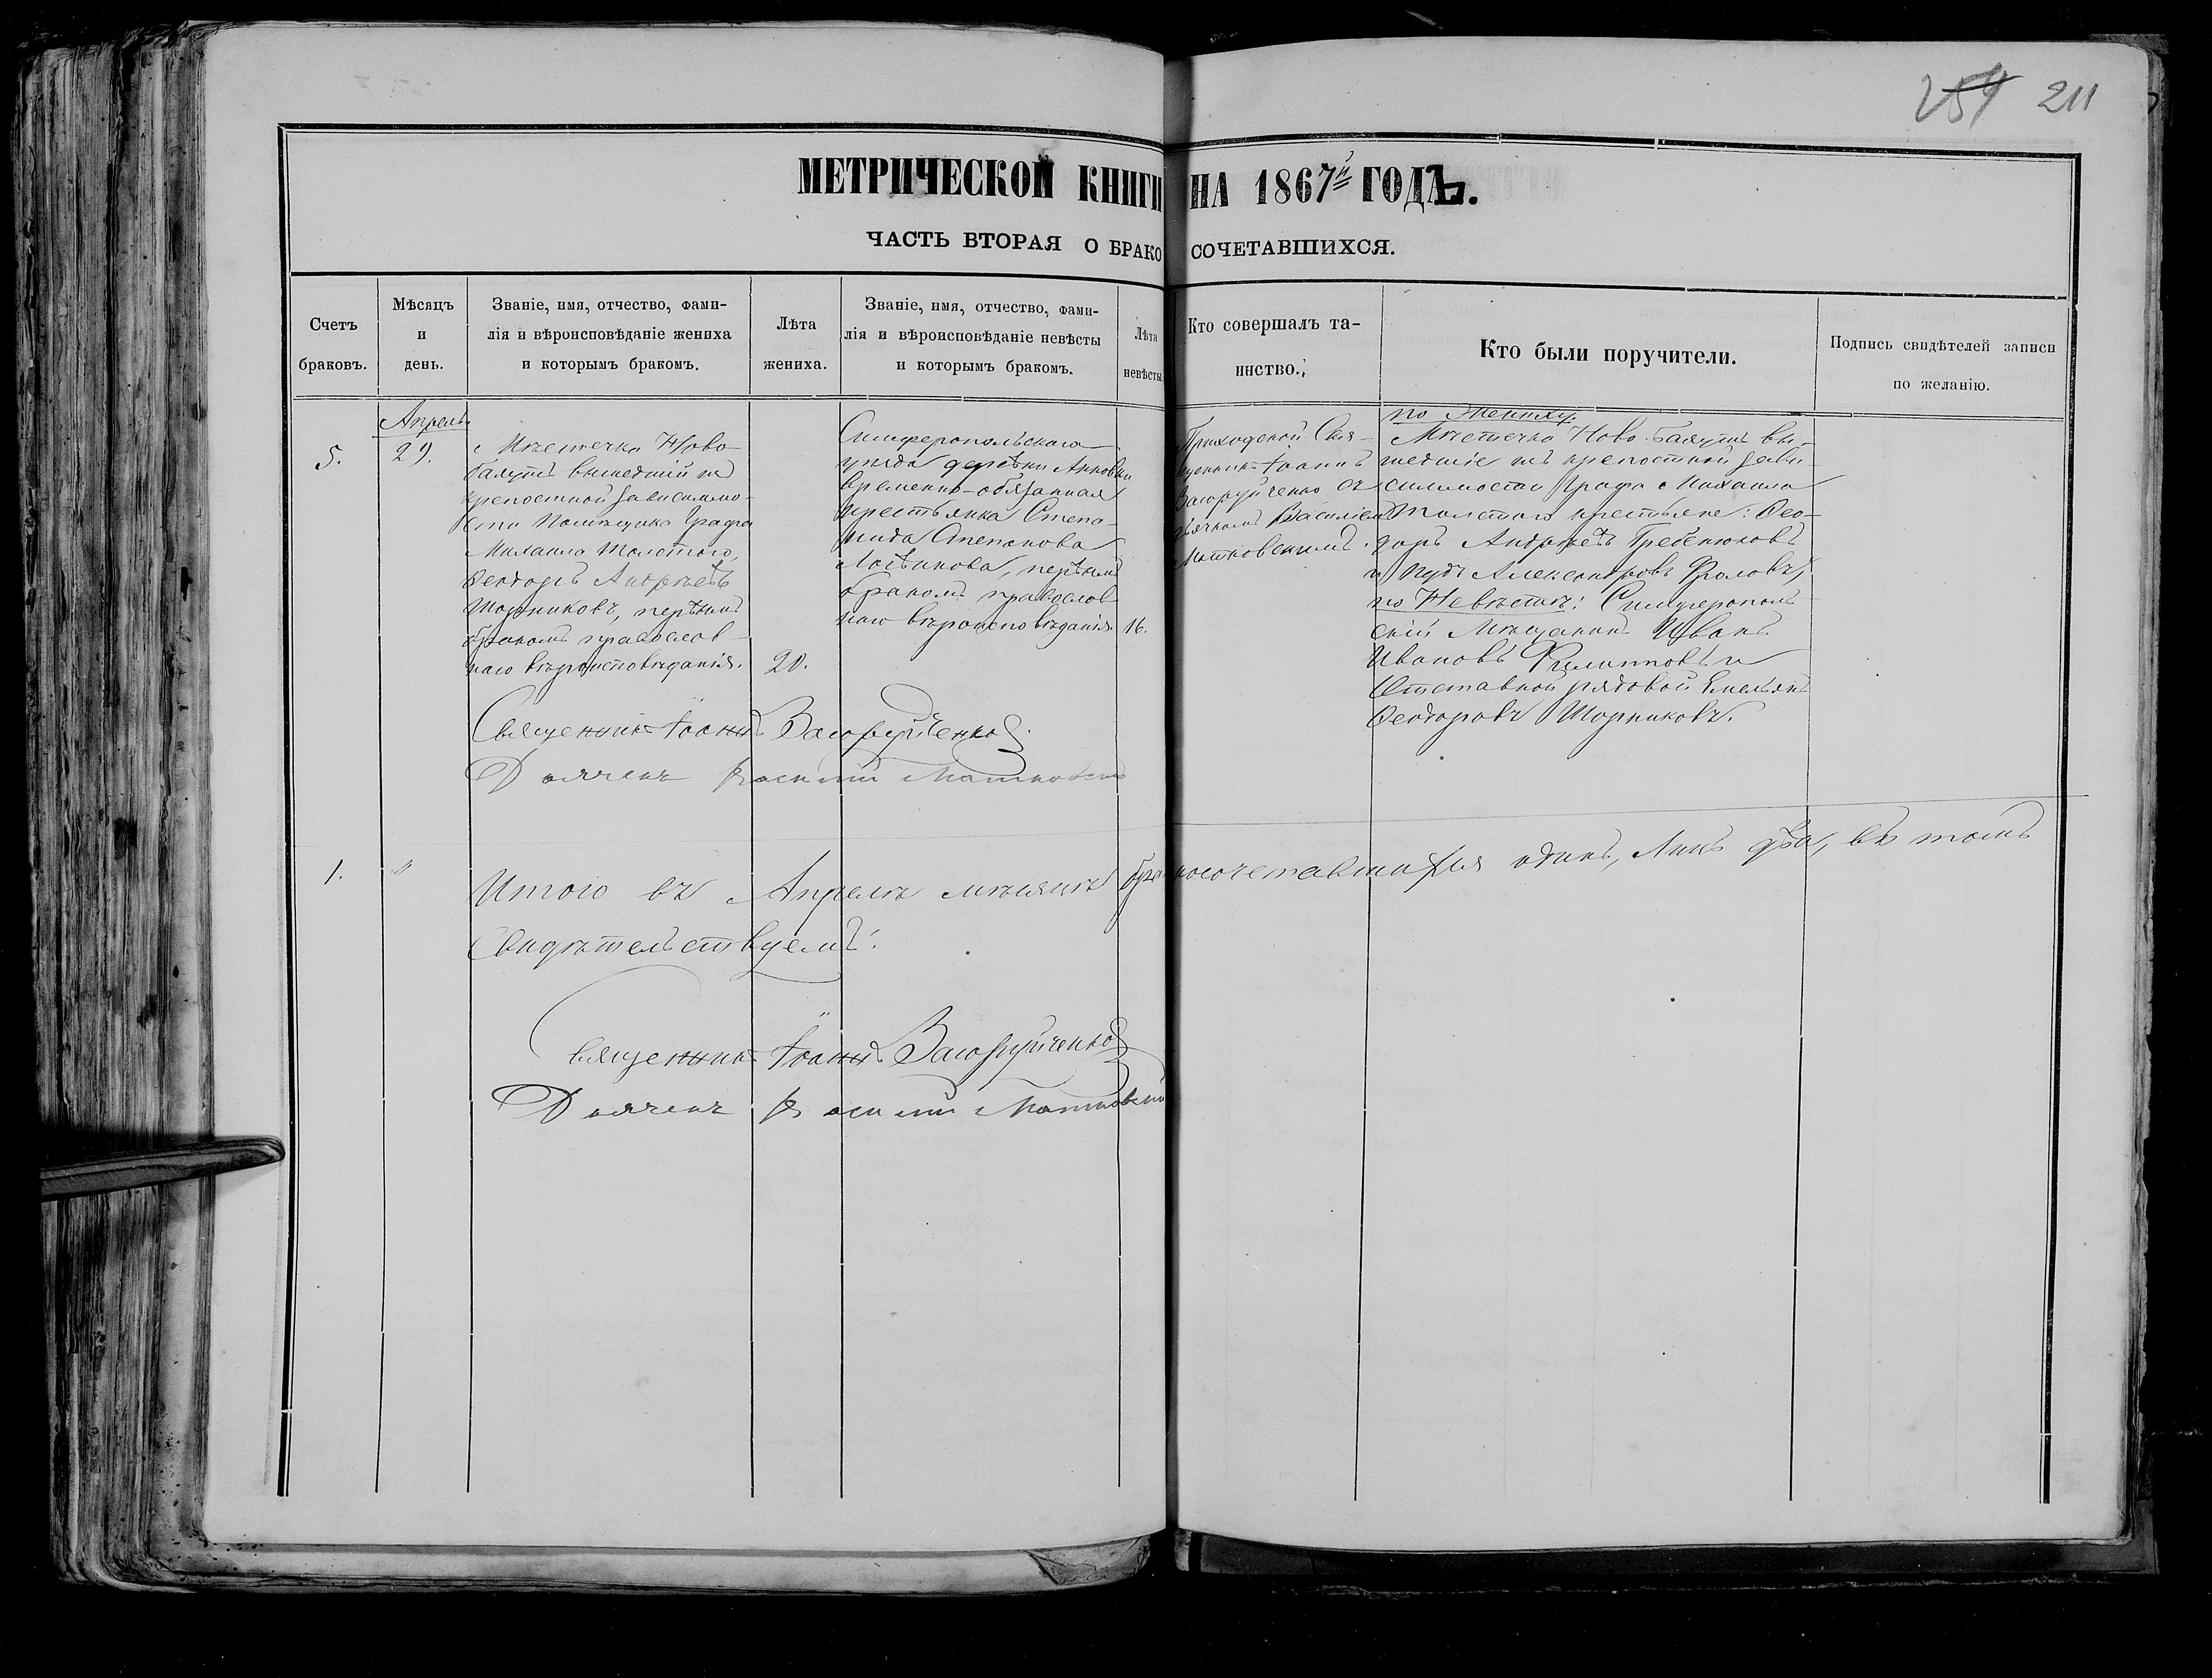 254 211
МЕТРИЧЕСКОЙ КНИГИ НА 1867й ГОДЪ.
ЧАСТЬ ВТОРАЯ О БРАКОСОЧЕТАВШИХСЯ.
Счетъ
браковъ.
Мѣсяцъ
и
день.
Званіе, имя, отчество, фами-
лія и вѣроисповѣданіе жениха
и которымъ бракомъ.
Лѣта
жениха.
Званіе, имя, отчество, фами-
лія и вѣроисповѣданіе невѣсты
и которымъ бракомъ.
Лѣта
невѣсты.
Кто совершалъ та-
инство.
Кто были поручители.
Подпись свидѣтелей записи
по желанію.
5.
Апрель
29.
Мѣстечка Ново-
баяутъ вышедшій изъ
крепостной зависимо-
сти Помѣщика Графа
Михаила Толстого,
Феодоръ Андрѣевъ
Шорниковъ, первымъ
бракомъ православ-
наго вѣроисповѣданія.
20.
Симферопольскаго
уѣзда деревни Анновки
временно-обязанная
крестьянка Степа-
нида Степанова
Логвинова, первымъ
бракомъ православ-
наго вѣроисповѣданія.
16.
Приходской Свя-
щенникъ Іоаннъ
Загоруйченко съ
дьячкомъ Василіемъ
Матковскимъ.
по Жениху:
Мѣстечка Ново-баяутъ вы-
шедшіе изъ крепостной зави-
симости Графа Михаила
Толстого крестьяне: Фео-
доръ Андрѣевъ Гребенюковъ
и Пудъ Александровъ Фроловъ;
по Невѣстѣ: Симферополь-
скій Мѣщанинъ Иванъ
Ивановъ Филипповъ и
Отставной рядовой Емельянъ
Феодоровъ Шорниковъ.
Священникъ Іоаннъ Загоруйченко.
Дьячекъ Василій Матковскій
1. "
Итого въ Апрелѣ мѣсяцѣ бракосочетавшихся одинъ, лицъ два, въ томъ
Свидѣтельствуемъ:
Священникъ Іоаннъ Загоруйченко
Дьячекъ Василій Матковскій